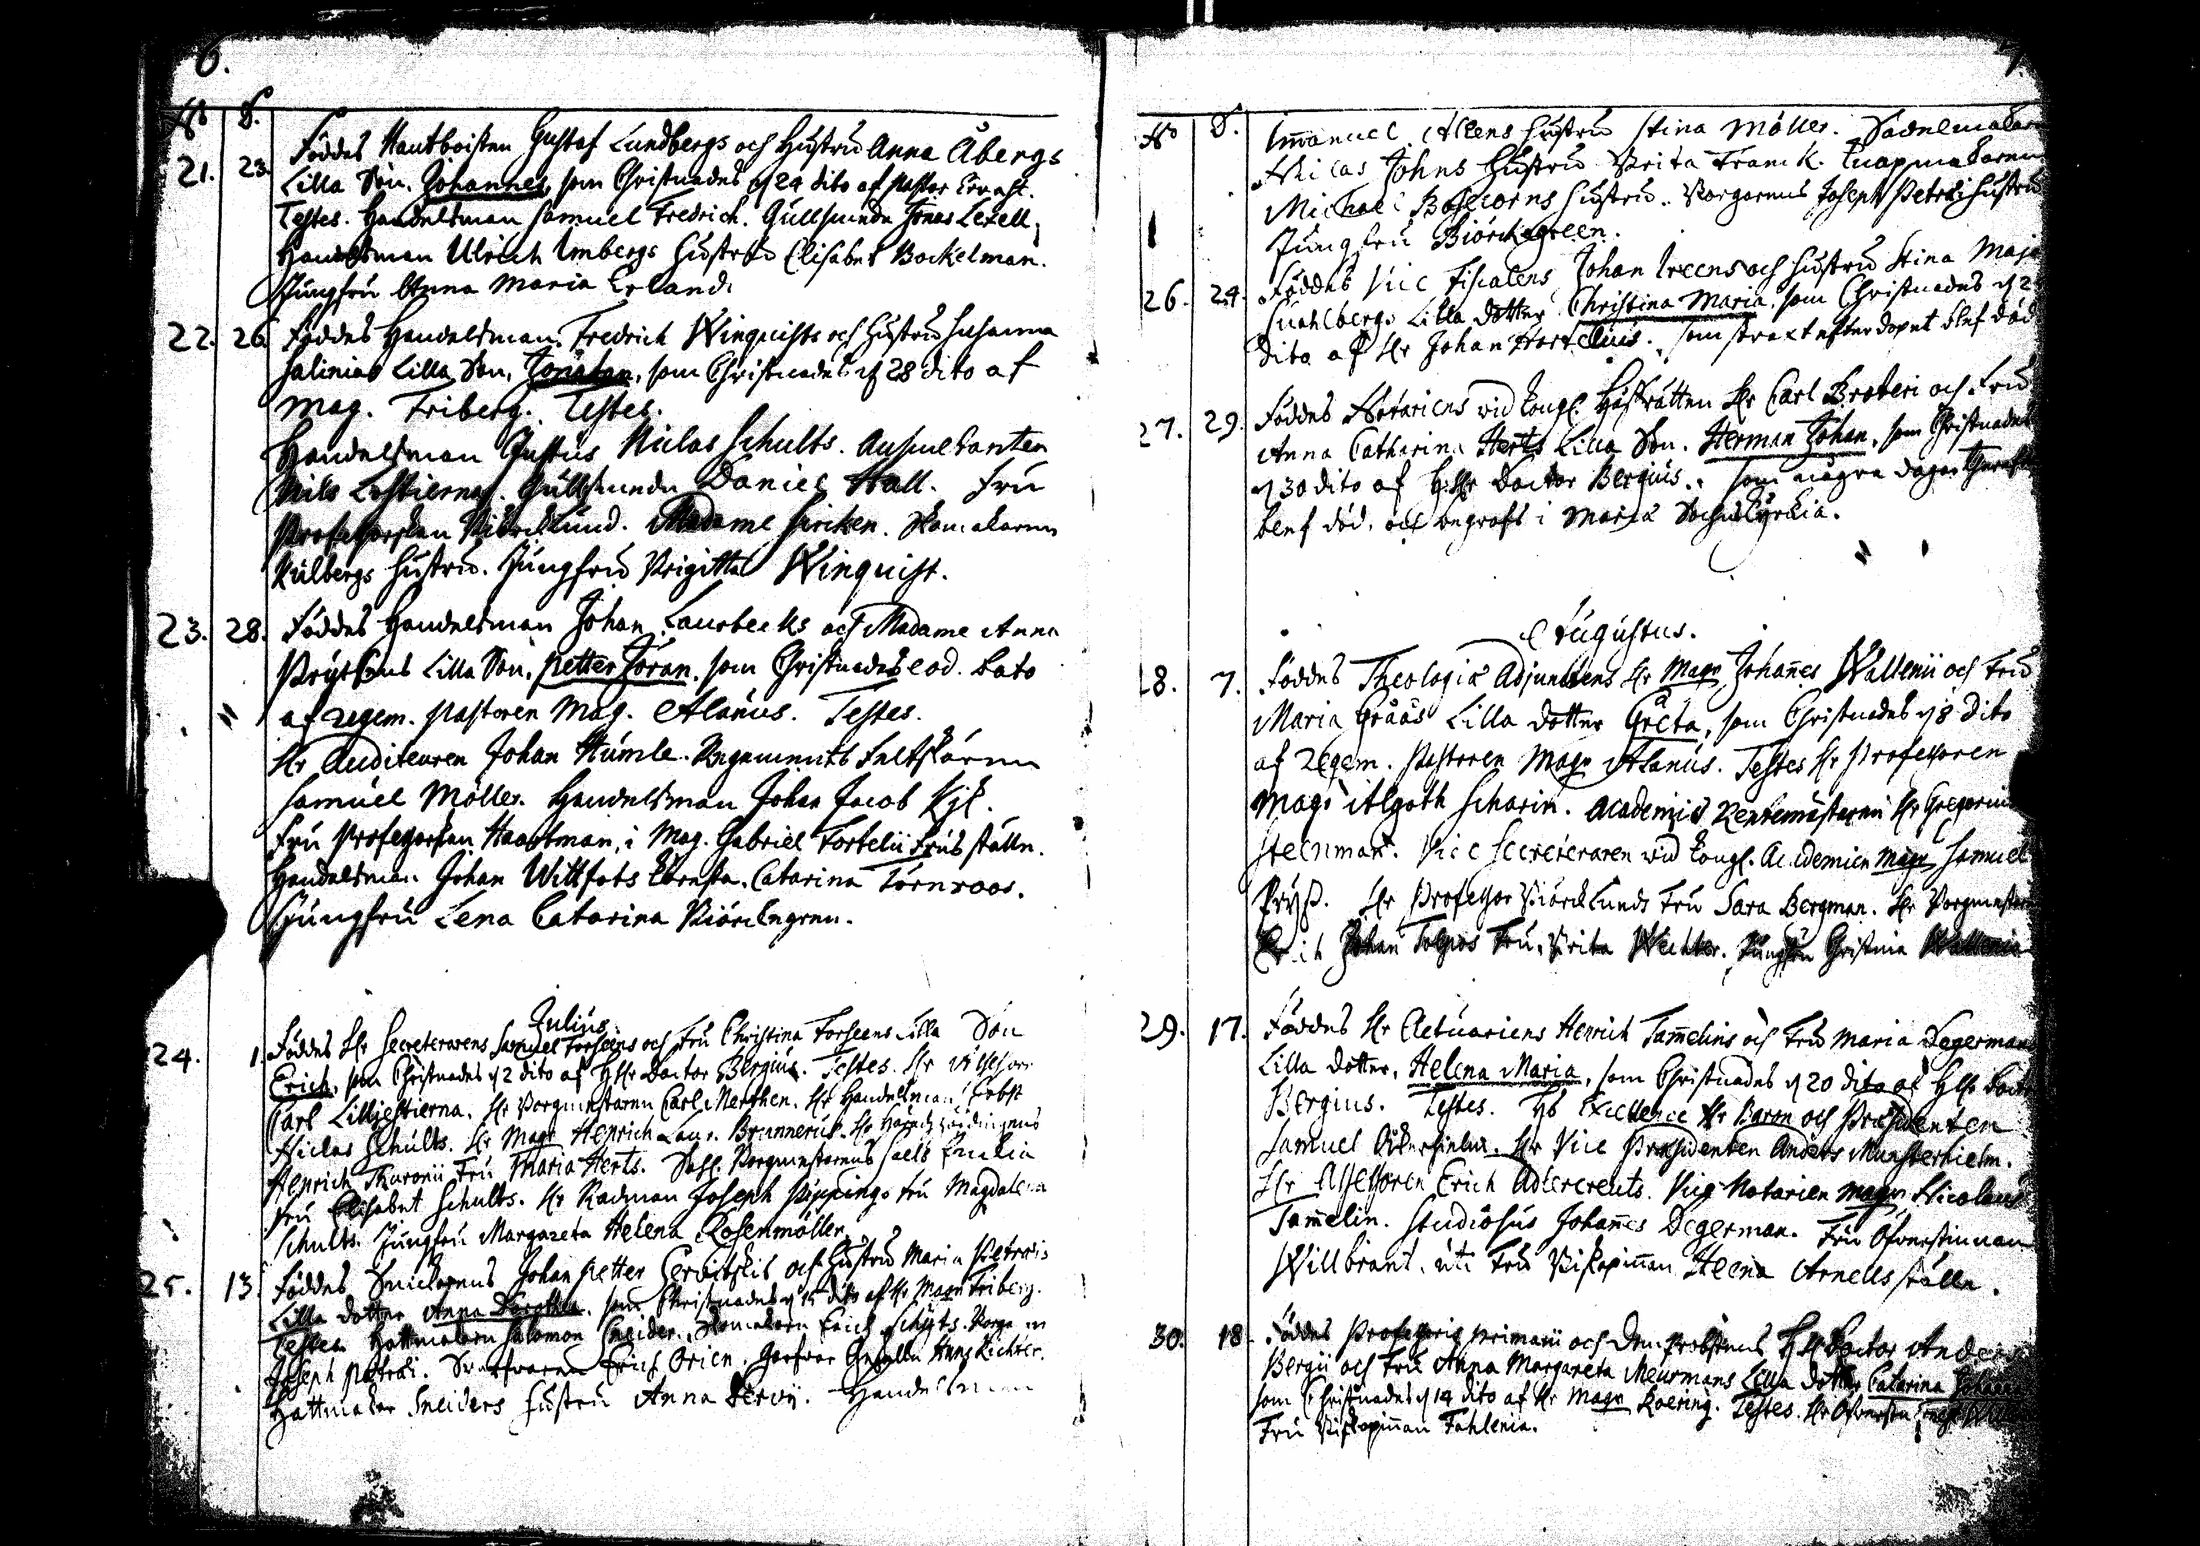 6.
No D.
21. 23. Föddes Hautboisten Gustaf Lundbergs och Hustru Anna Åbergs
Lilla Son. Johannes, som Christnades d 24 dito af Pastor Ernest.
Testes. Handelsman Samuel Fredrich. Gullsmeden Jonas Lexell,
Handelsman Ulrich Umbergs Hustru Elisabet Bockelman.
Jungfru Anna Maria Erland.
22. 26 Föddes Handelsman Fredrich Winquists och Hustru Susanna
Salinias Lilla Son, Jonatan, som Christnades d 28 dito af
Mag. Friberg. Testes.
Handelsman Justus Niclas Schults. Auscultanten
Nils . Gullsmeden Daniel Hall. Fru
Professorskan Biörcklund. Madame . Skomakaren
Kulbergs Hustru. Jungfru Brigitta Winquist.
23. 28. Föddes Handelsman Johan Laurbecks och Madame Anna
Prytzens Lilla Son, Petter Jöran, som Christnades eod. dato
af regem. Pastoren Mag. Alanus. Testes.
Hr Auditeuren Johan Humle. Regements Feltskären
Samuel Möller. Handelsman Johan Jacob Kjk.
Fru Professorskan Haartman, i Mag. Gabriel Fortelii Frus ställe.
Handelsman Johan Wittfots Catarina Törnroos.
Jungfru Lena Catarina Biörckegren.
Julius.
24. 1. Föddes Hr Secreterarens Samuel Forseens och Fru Christina Forseens Lilla Son
Erich, som Christnades d 2 dito af HHr Doctor Bergius. Testes. Hr Assessoren
Carl Lilljestierna. Hr Borgmestaren Carl Merthen. Hr Handelsman Jobst
Niclas Schults. Hr Magr Henrich Laur. Brunnerus. Hr Häradzhöfdingens
Henrich Thuronii Fru Maria Herts. Sahl. Borgmestarens
Fru Elisabet Schults. Hr Radman Joseph Pippings Fru Magdalena
Schults. Jungfru Margareta Helena Rosenmöller.
25. 13. Föddes Snickarens Johan Petter och Hustru Maria
Lilla dotter Anna Dorothea, som Christnades d 15 dito af Hr Magr Friberg.
Testes Hattmakaren Salomon Sneider. Skomakaren Erich Schyts.
Joseph Petrei. Erich Orien. Hans Richter.
Hattmakar Sneiders Hustru Anna . Handelsman
7.
No D. Immanuel Aleens Hustru Stina Möller. Sadelmakaren
Niclas Johns Hustru Brita Franck. Knapmakaren
Michael Hustru. Borgarens Joseph Petrei Hustru
Jungfru Biörckegreen.
26. 24. Föddes Vice Fiscalens Johan och Hustru Stina Maja
Lilla dotter Christina Maria, som Christnades d
dito af Hr Johan . som straxt efter dopet blef död
27. 29. Föddes Notariens wid kongl. Hofrätten Hr Carl Broteri och Fru
Anna Catharina Herts Lilla Son. Herman Johan, som Christnades
d 30 dito af HHr Doctor Bergius. som några dagar therefter
blef död, och begrofs i Maria Sochnskyrkia.
Augustus.
28. 7. Föddes Theologiæ Adjunctens Hr Magr Johannes Wallenii och Fru
Maria Grååss Lilla dotter Greta, som Christnades d 8 dito
af regem. Pastoren Magr Alanus. Testes Hr Professoren
Magr Algoth Scharin. Academiæ Rentemästaren Hr Gregorius
Steenman. Vice Secreteraren wid kongl. Academien Magr Samuel
Pryss. Hr Professor Biörcklunds Fru Sara Bergman. Hr Borgmestaren
Erich Johan Tolpos Fru Brita Wechter. Jungfru Christina Wallenia
29. 17. Föddes Hr Actuariens Henrich Tammelins och Fru Maria Degermans
Lilla dotter, Helena Maria, som Christnades d 20 dito af HHr Doctor
Bergius. Testes. Hs Excellence Hr Baron och Præsidenten
Samuel Åkerhielm. Hr Vice Præsidenten Anders Munsterhielm.
Hr Assessoren Erich Adlercreuts. Vice Notarien Magr Nicolaus
Tammelin. Studiosus Johannes Degerman. Fru Öfverstinnan
Willbrant, uti Fru Biskopinnan Helena Arnells ställe.
30. 18 Föddes Professoris primarii och Domprobstens HHr Doctor Anders
Bergii och Fru Anna Margareta Meurmans Lilla dotter Catarina Johanna
som Christnades d 19 dito af Hr Magr Roering. Testes. Hr Öfversten
Fru Biskopinnan Fahlenia.